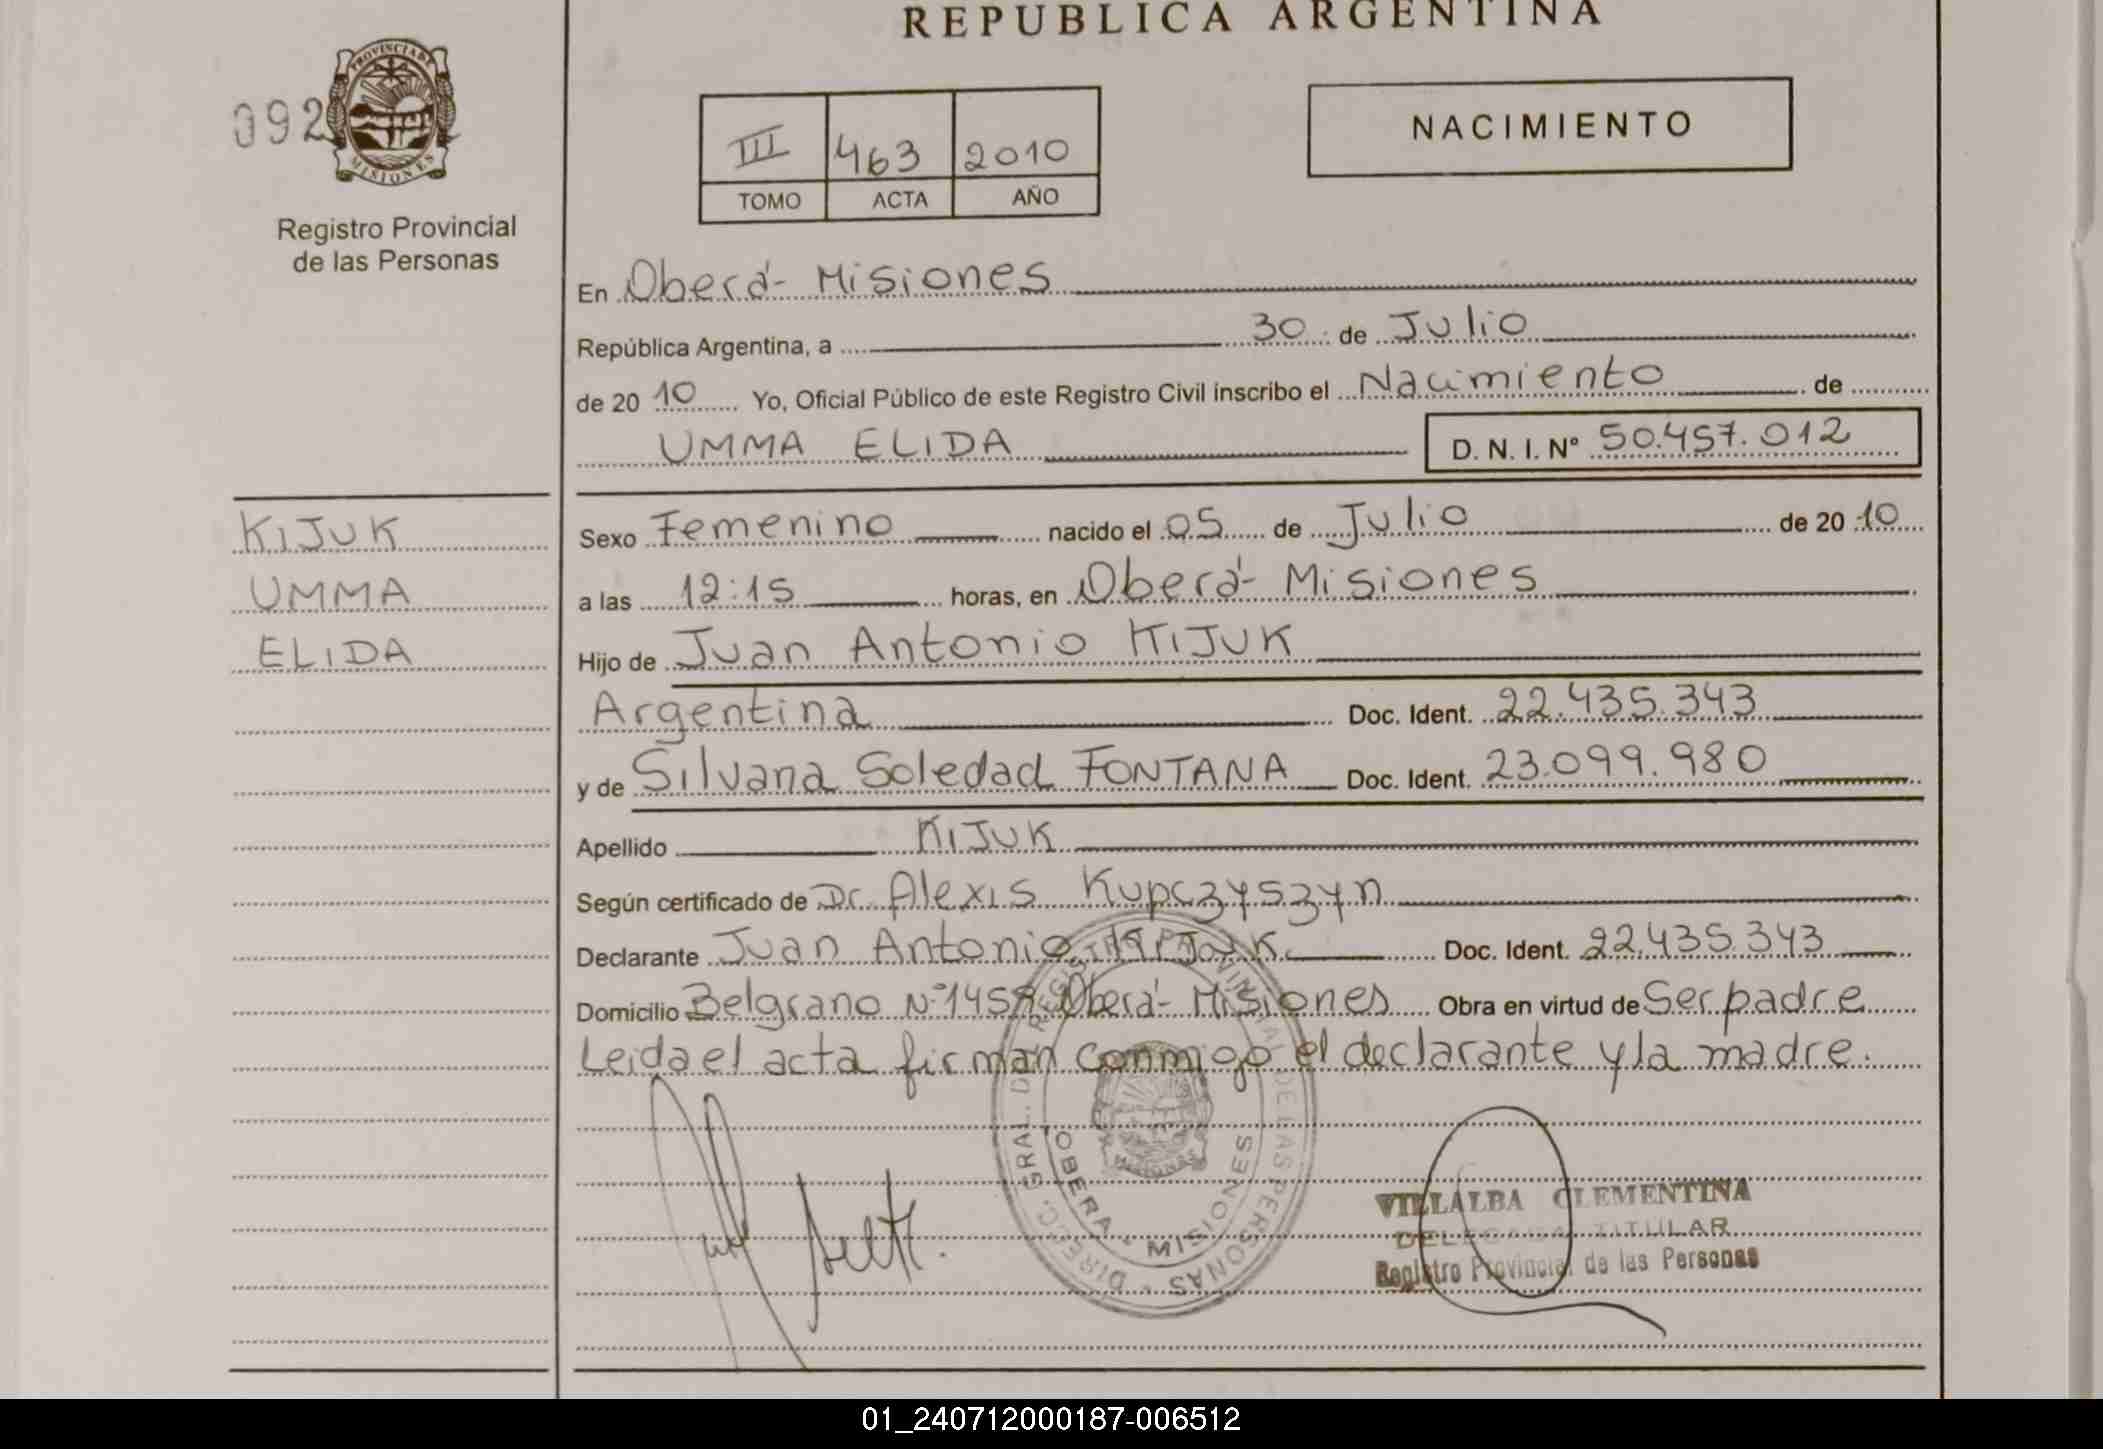 REPUBLICA ARGENTINA
092
PROVINCIA DE
MISIONES
Registro Provincial
de las Personas
III 463 2010
TOMO ACTA AÑO
NACIMIENTO
En Oberá- Misiones
República Argentina, a 30 de Julio
de 2010 Yo, Oficial Público de este Registro Civil inscribo el Nacimiento de
UMMA ELIDA D. N. I. Nº 50.457.012
KIJUK
UMMA
ELIDA
Sexo Femenino nacido el 05 de Julio de 2010
a las 12:15 horas, en Oberá- Misiones
Hijo de Juan Antonio KIJUK
Argentina Doc. Ident. 22.435.343
y de Silvana Soledad FONTANA Doc. Ident. 23.099.980
Apellido KIJUK
Según certificado de Dr. Alexis Kupczyszyn
Declarante Juan Antonio KIJUK Doc. Ident. 22.435.343
Domicilio Belgrano Nº 145 Oberá- Misiones Obra en virtud de Ser padre
Leida el acta firman conmigo el declarante y la madre.
DIREC. GRAL. DEL REGISTRO PROVINCIAL DE LAS PERSONAS
OBERA - MISIONES
MISIONES
VILLALBA CLEMENTINA
DELEGADA TITULAR
Registro Provincial de las Personas
01_240712000187-006512